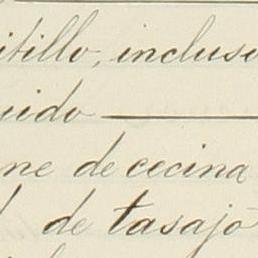 itillo, incluso
uido
ne de cecina
de tasajo